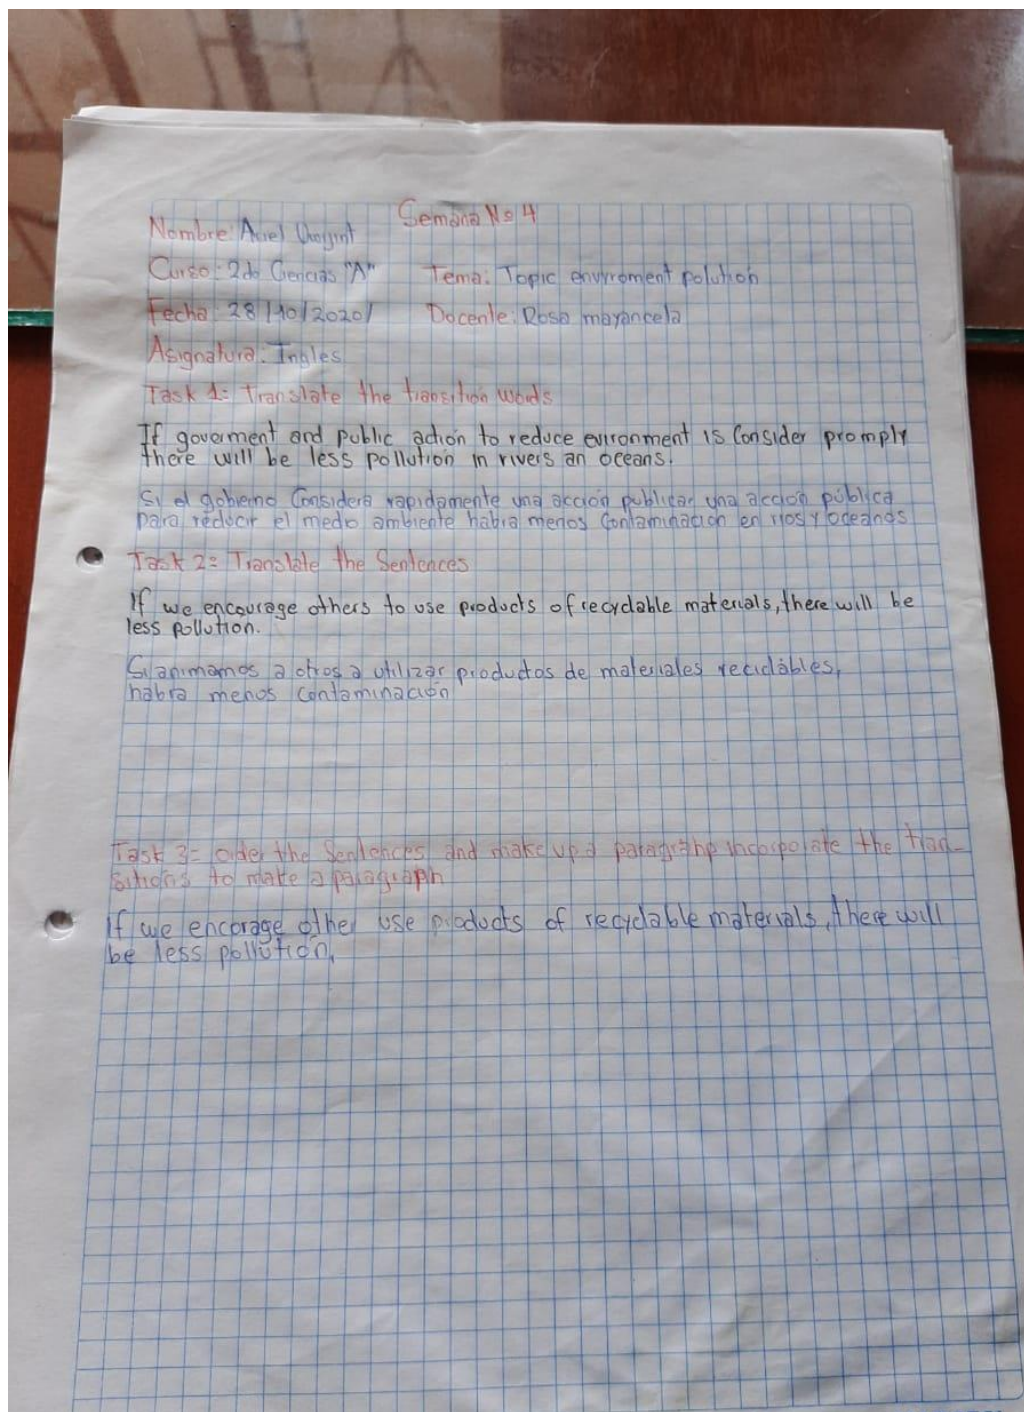 Semana No 4
Nombre: Ariel
Curso: 2do Ciencias "A" Tema: Topic envyroment polution
Fecha: 28/10/2020/ Docente: Rosa mayancela
Asignatura: Ingles
Task 1= Translate the transition words
If goverment and public action to reduce evironment is Consider promply
there will be less pollution in rivers an oceans.
Si el gobierno Considera rapidamente una acción publicar una acción pública
para reducir el medio ambiente habra menos Contaminación en rios y oceanos
Task 2= Translate the Sentences
If we encourage others to use products of recyclable materials, there will be
less pollution.
Si animamos a otros a utilizar productos de materiales reciclábles,
habra menos contaminación
Task 3= order the Sentences and make up a paragrahp incorporate the tran-
sitions to make a paragraph
If we encorage other use products of recyclable materials, there will
be less pollution.